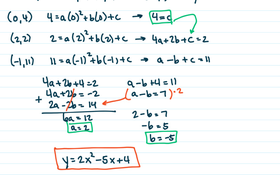 (0,4) 4=a(0)²+b(0)+c → 4=c
(2,2) 2=a(2)²+b(2)+c → 4a+2b+c=2
(-1,11) 11=a(-1)²+b(-1)+c → a-b+c=11
4a+2b+4=2 a-b+4=11
+ 4a+2b=-2 (a-b=7)·2
2a-2b=14 2-b=7
6a=12 -b=5
a=2 b=-5
y=2x²-5x+4